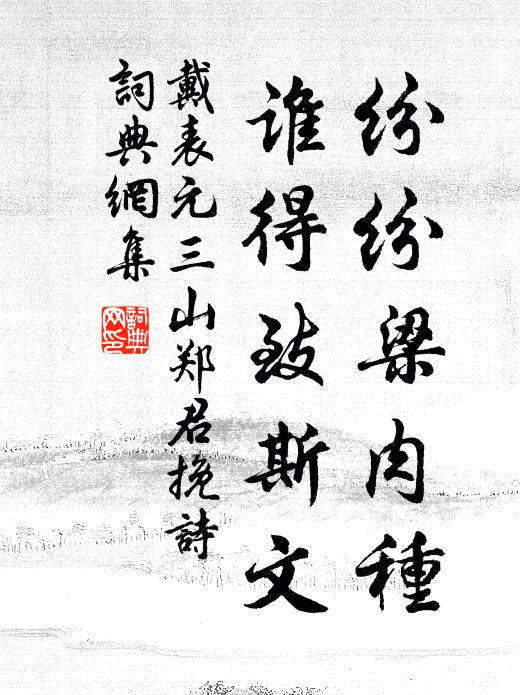 纷纷梁肉種
谁得致斯文
戴表元三山郑君挽詩
詞典網集
詞典網印